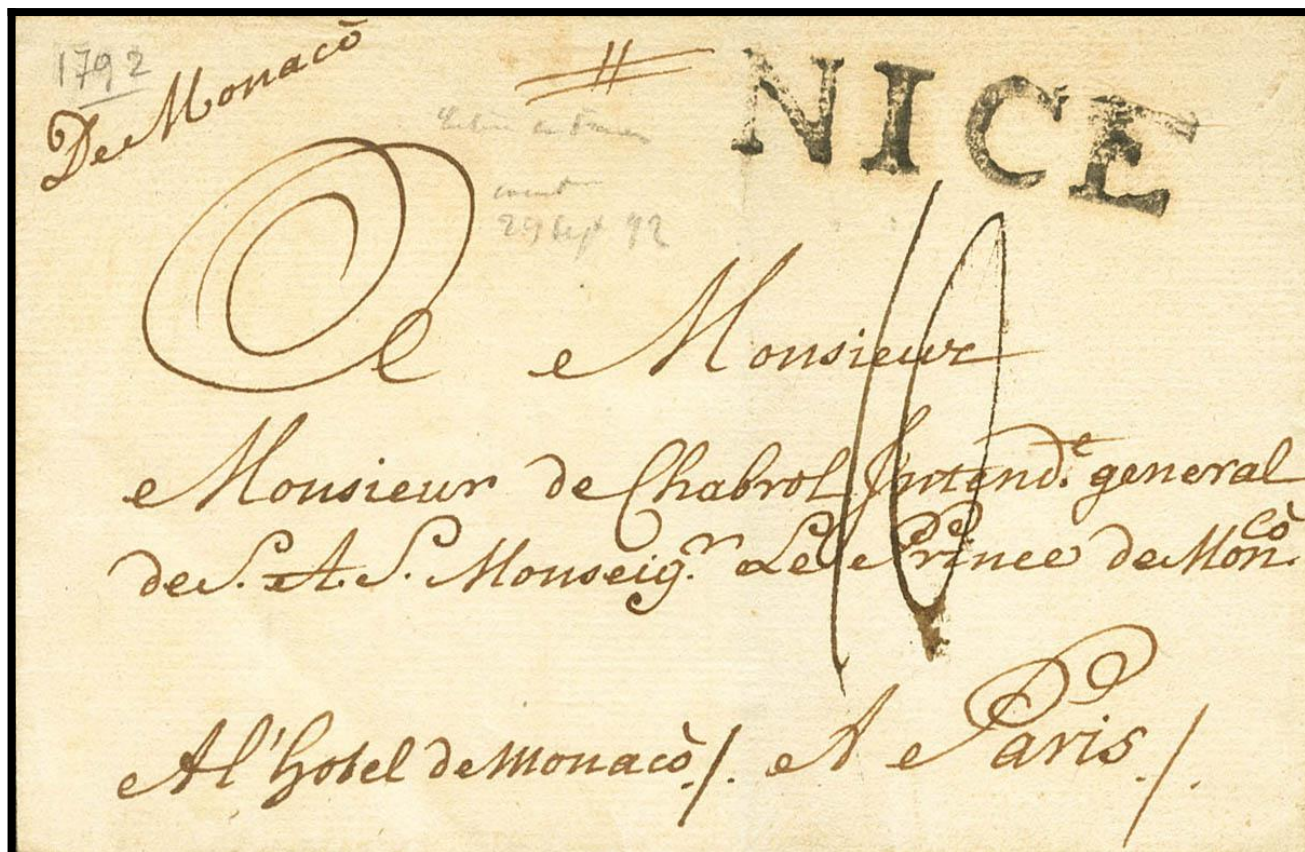 1792
De Monacò
NICE
29 Sept 92
A Monsieur
Monsieur de Chabrol Intend.e general
de S. A. S. Monseig.r Le Prince de Mon.cò
A l'hotel de Monacò /. A Paris /.
10